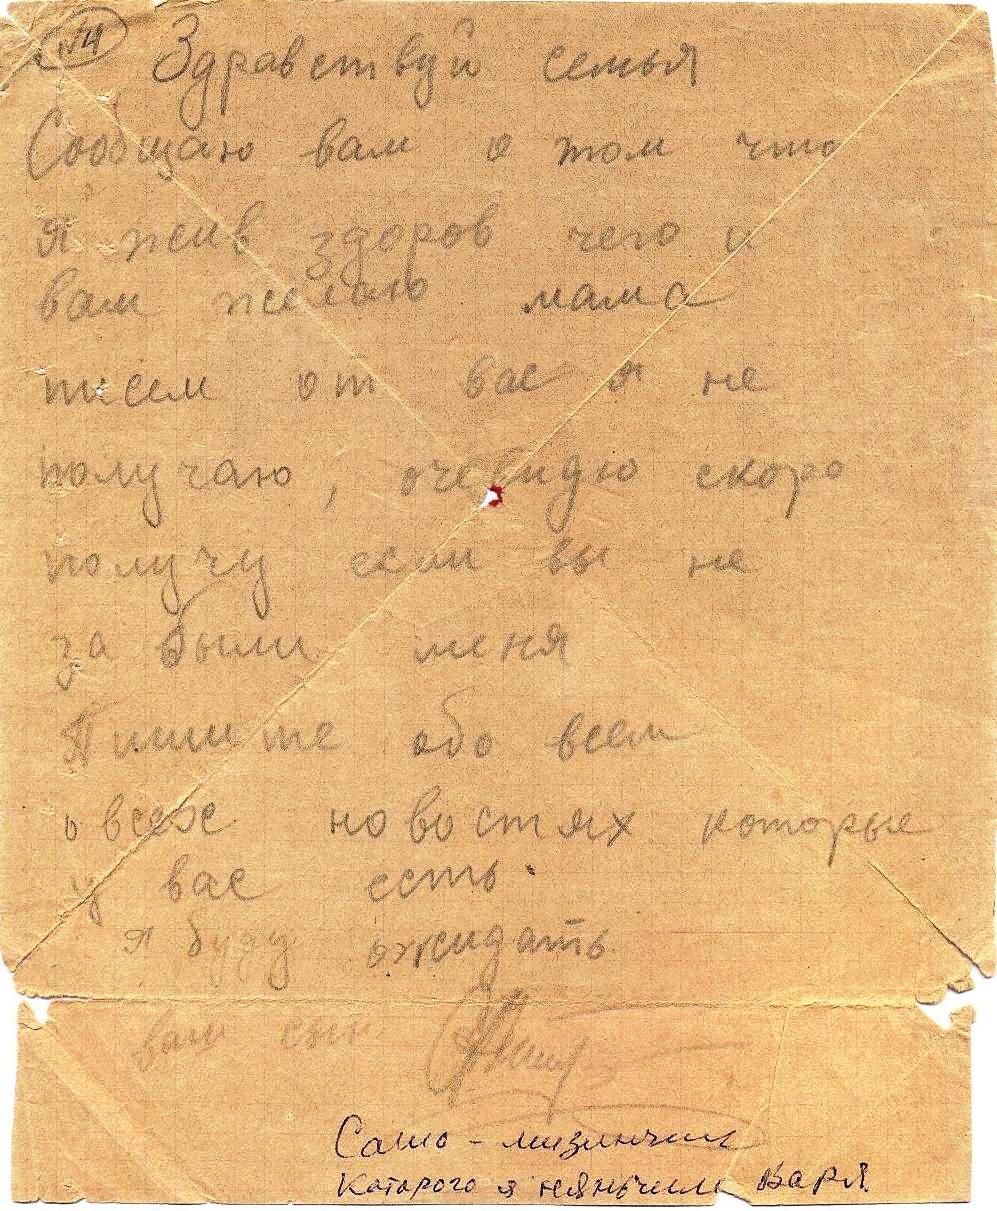 №4
Здравствуй семья
Сообщаю вам о том что
я жив здоров чего и
вам желаю мама
писем от вас я не
получаю, очевидно скоро
получу если вы не
за были меня
Пишите обо всем
о всех новостях которые
у вас есть
я буду ожидать
ваш сын
Саша - мизинчик
Которого я няньчила Варя